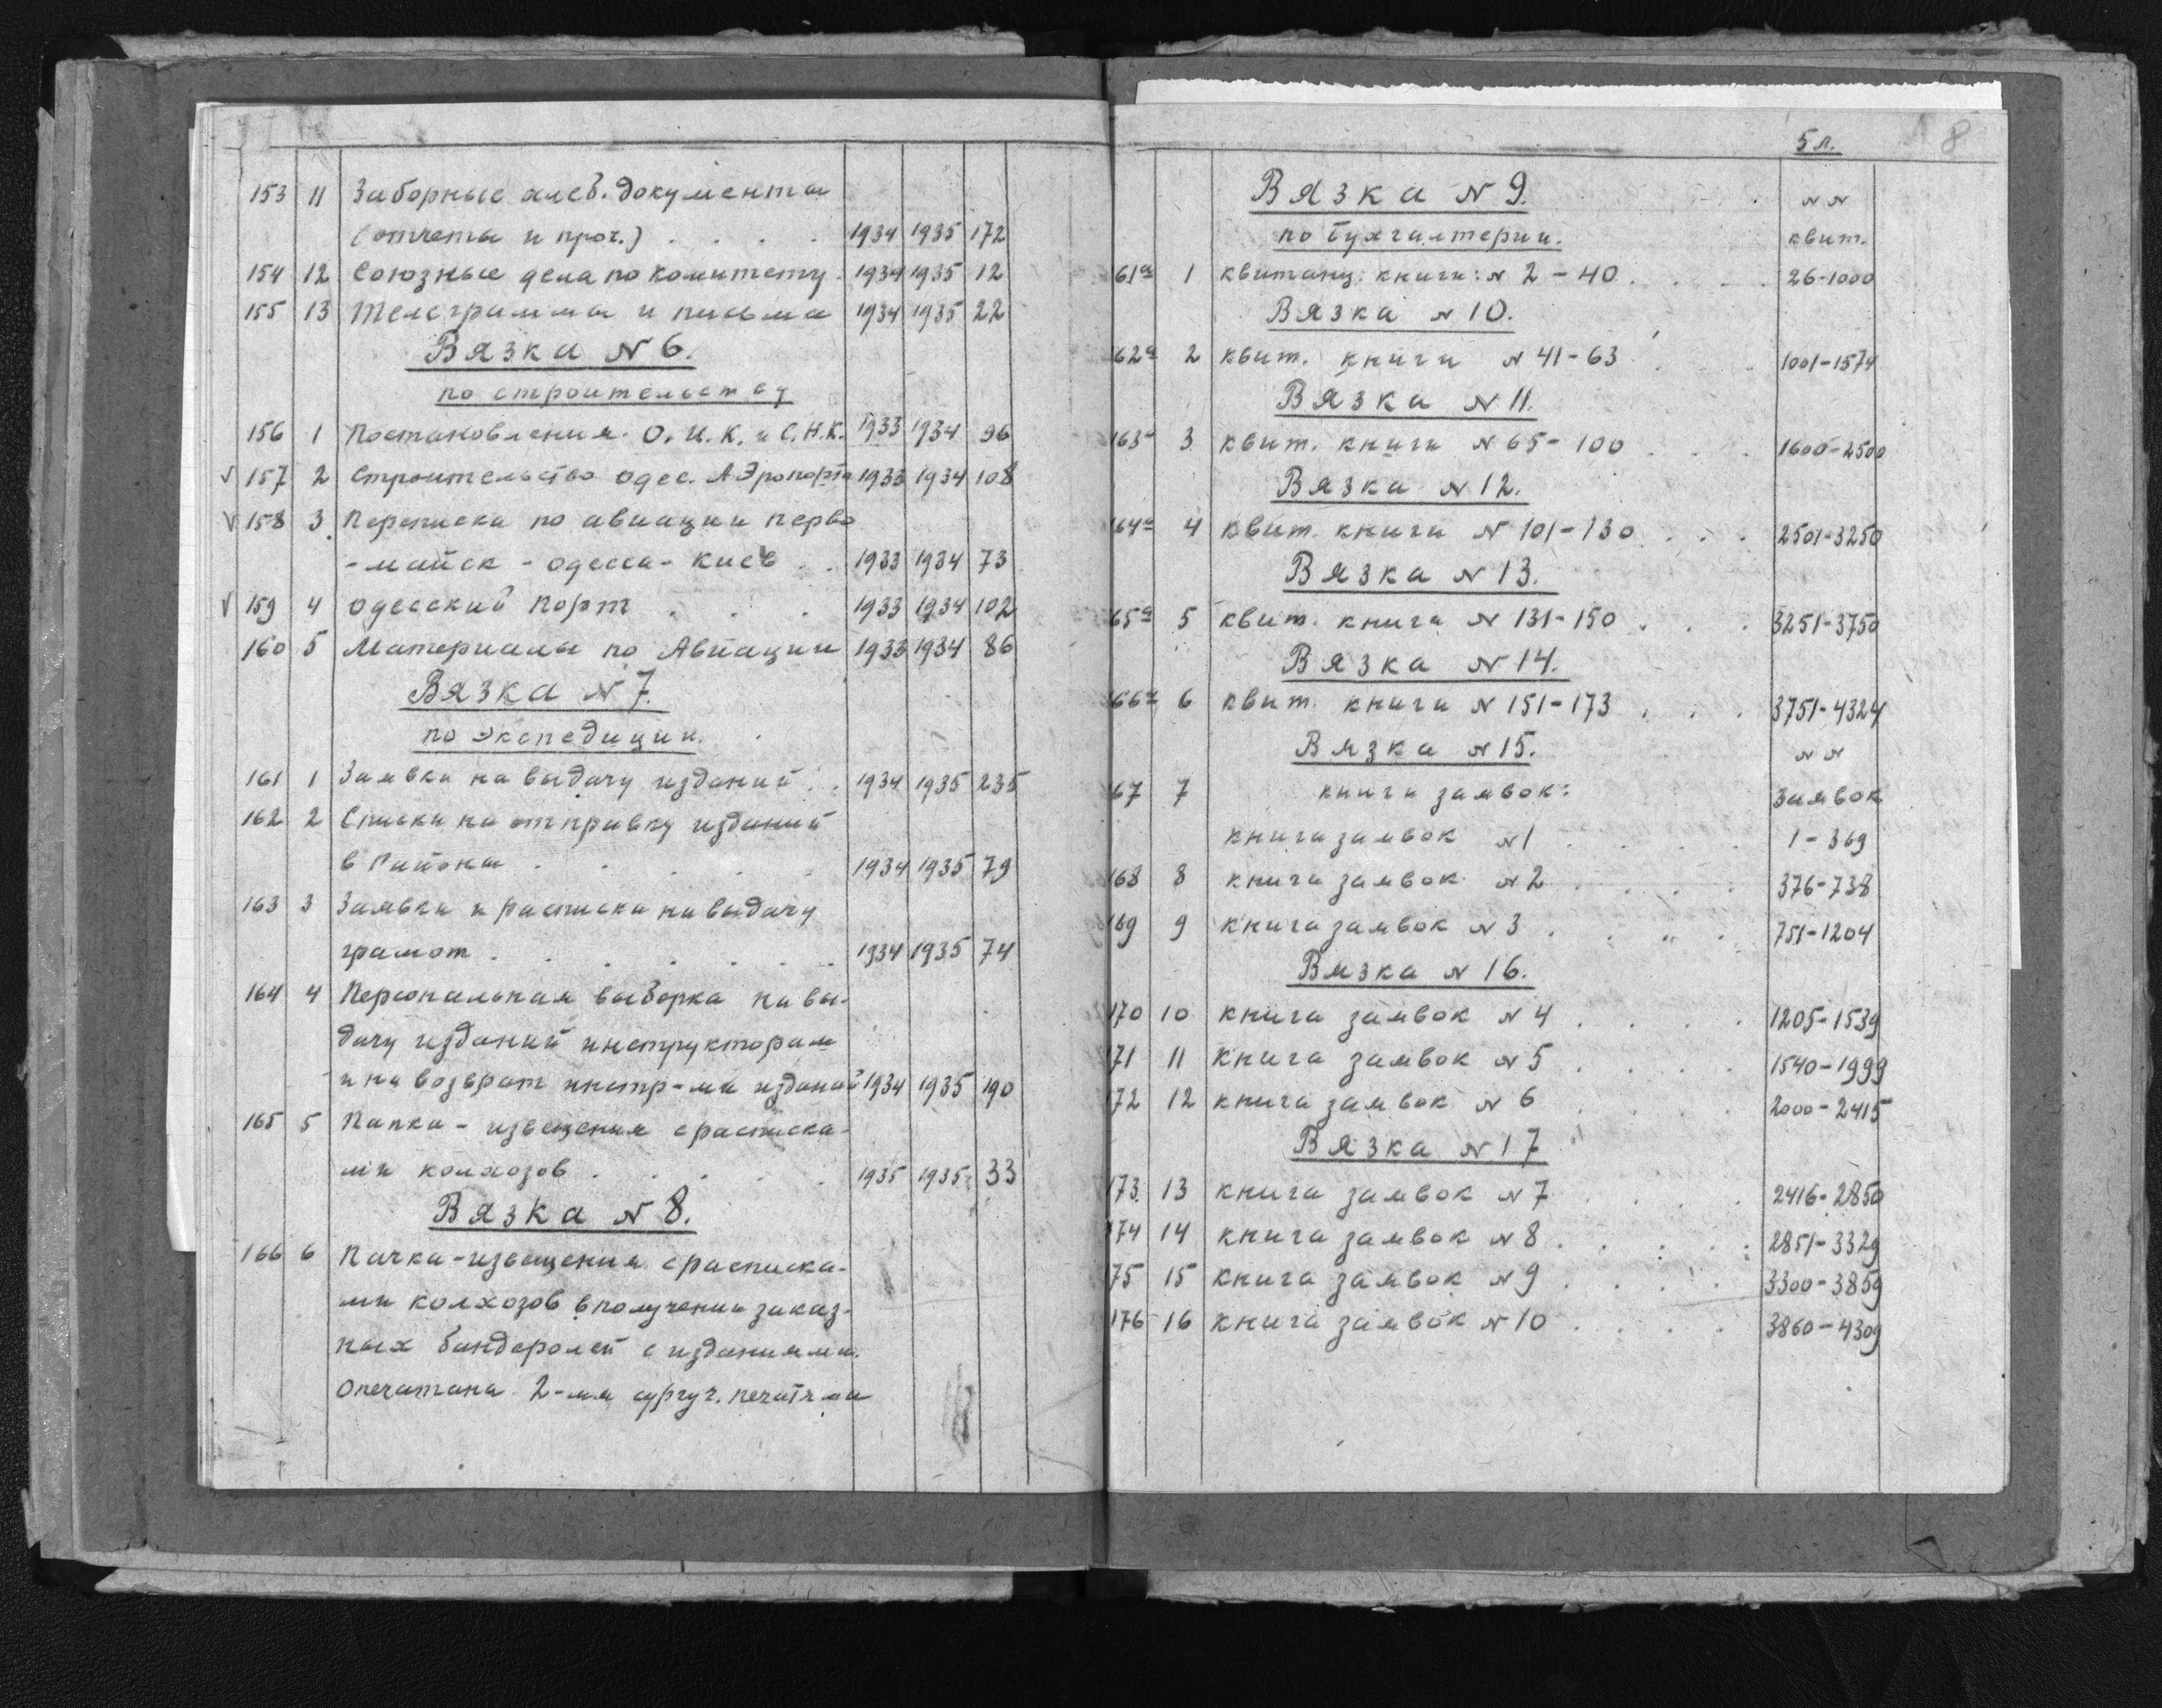 153 11 Заборные алеб. документы
(отчеты и проч.) . . . . 1934 1935 172
154 12 Союзные дела по комитету. 1934 1935 12
155 13 Телеграммы и письма 1934 1935 22
Вязка N 6.
по строительству
156 1 Постановления О. И. К. и С. Н. К. 1933 1934 96
√ 157 2 Строительство Одес. АЭропорта 1933 1934 108
√ 158 3 Переписка по авиации перво
-майск - одесса - киев . . 1933 1934 73
√ 159 4 Одесский Порт . . . 1933 1934 102
160 5 Материалы по Авиации 1933 1934 86
Вязка N 7.
по Экспедиции.
161 1 Заявки на выдачу изданий . . 1934 1935 235
162 2 Списки на отправку изданий
в Районы . . . . 1934 1935 79
163 3 Заявки и расписки на выдачу
грамот . . . . . . . 1934 1935 74
164 4 Персональная выборка на вы-
дачу изданий инструкторам
и на возврат инстр-ми изданий 1934 1935 190
165 5 Папка - извещения с расписка-
ми колхозов . . . . . 1935 1935 33
Вязка N 8.
166 6 Пачка - извещения с расписка-
ми колхозов в получении заказ-
ных бандеролей с изданиями.
Опечатана 2-мя сургуч. печатями
5 л. 8
Вязка N 9. N N
по бухгалтерии. квит.
61а 1 квитанц. книги: N 2 - 40 . . . . 26-1000
Вязка N 10.
62а 2 квит. книги N 41-63 . . . 1001-1574
Вязка N 11.
163а 3 квит. книги N 65-100 . . . 1600-2500
Вязка N 12.
164а 4 квит. книги N 101-130 . . . 2501-3250
Вязка N 13.
65а 5 квит. книги N 131-150 . . . 3251-3750
Вязка N 14.
66а 6 квит. книги N 151-173 . . . 3751-4324
Вязка N 15. N N
67 7 книги заявок: заявок
книга заявок N 1 . . . . 1-369
168 8 книга заявок N 2 . . . . 376-738
169 9 книга заявок N 3 . . . . 751-1204
Вязка N 16.
170 10 книга заявок N 4 . . . . 1205-1539
171 11 книга заявок N 5 . . . . 1540-1999
172 12 книга заявок N 6 . . . . 2000-2415
Вязка N 17
173 13 книга заявок N 7 . . . . 2416-2850
174 14 книга заявок N 8 . . . . 2851-3329
75 15 книга заявок N 9 . . . . 3300-3859
176 16 книга заявок N 10 . . . . 3860-4309